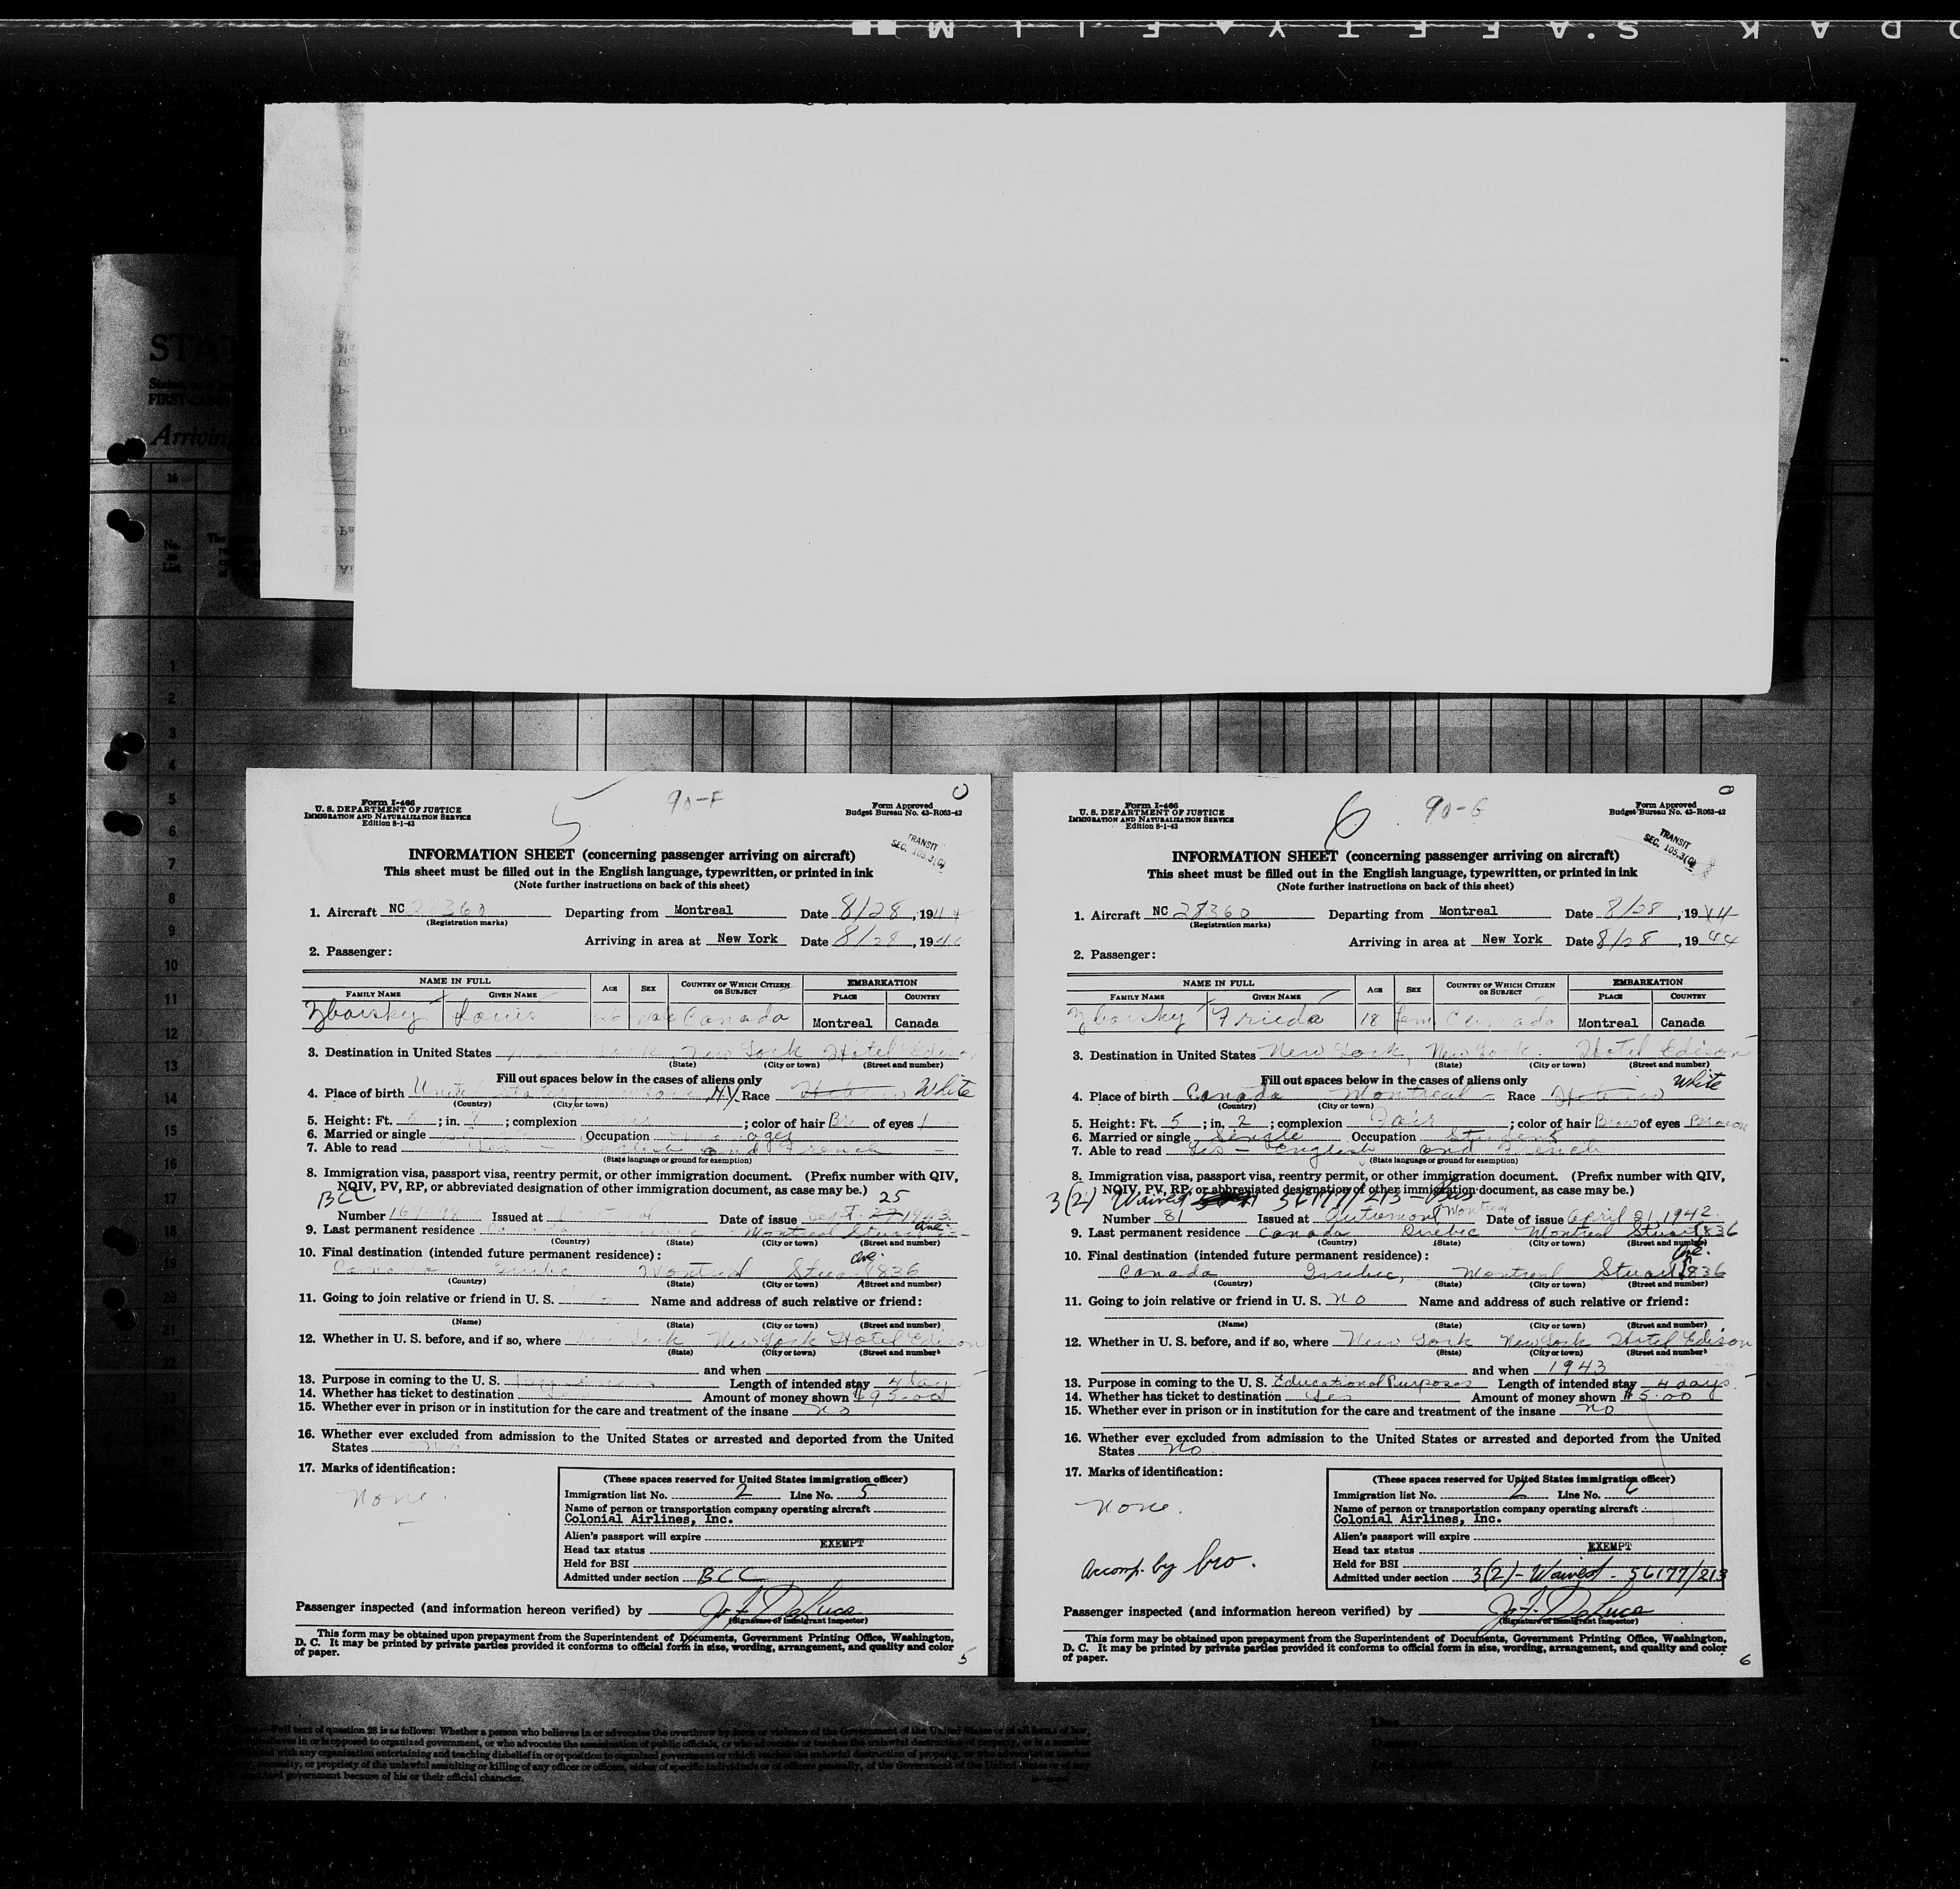 KODAK S.AFETY FILM
STA
FIRST-
Arrivin
Form I-466
U. S. DEPARTMENT OF JUSTICE
IMMIGRATION AND NATURALIZATION SERVICE
Edition 8-1-43
5
90-F
O
Form Approved
Budget Bureau No. 43-R063-42
TRANSIT
SEC. 105.3(C)
INFORMATION SHEET (concerning passenger arriving on aircraft)
This sheet must be filled out in the English language, typewritten, or printed in ink
(Note further instructions on back of this sheet)
1. Aircraft NC 28360 Departing from Montreal Date 8/28, 1944
(Registration marks)
Arriving in area at New York Date 8/28, 194
2. Passenger:
NAME IN FULL AGE SEX COUNTRY OF WHICH CITIZEN OR SUBJECT EMBARKATION
FAMILY NAME GIVEN NAME PLACE COUNTRY
Zbarsky Louis 26 male Canada Montreal Canada
3. Destination in United States New York, New York Hotel Edison
(State) (City or town) (Street and number)
Fill out spaces below in the cases of aliens only
4. Place of birth United States N.Y. Race Hebrew White
(Country) (City or town)
5. Height: Ft. ; in. ; complexion ; color of hair Br of eyes
6. Married or single Occupation Manager
7. Able to read Yes - English and French
(State language or ground for exemption)
8. Immigration visa, passport visa, reentry permit, or other immigration document. (Prefix number with QIV,
NQIV, PV, RP, or abbreviated designation of other immigration document, as case may be.)
BCC 25
Number Issued at Date of issue Sept. 27 1943.
9. Last permanent residence Canada Montreal Stuart Ave.
(Country) (State) (City or town) (Street and number)
10. Final destination (intended future permanent residence):
Canada Quebec Montreal Stuart Ave. 836
(Country) (State) (City or town) (Street and number)
11. Going to join relative or friend in U. S. No Name and address of such relative or friend:
(Name) (State) (City or town) (Street and number)
12. Whether in U. S. before, and if so, where New York New York Hotel Edison
(State) (City or town) (Street and number)
and when
13. Purpose in coming to the U. S. Length of intended stay 4 days
14. Whether has ticket to destination Amount of money shown $95.00
15. Whether ever in prison or in institution for the care and treatment of the insane no
16. Whether ever excluded from admission to the United States or arrested and deported from the United
States no
17. Marks of identification:
None.
(These spaces reserved for United States immigration officer)
Immigration list No. 2 Line No. 5
Name of person or transportation company operating aircraft
Colonial Airlines, Inc.
Alien's passport will expire
Head tax status EXEMPT
Held for BSI
Admitted under section BCC
Passenger inspected (and information hereon verified) by J. F. DeLuca
(Signature of immigrant inspector)
This form may be obtained upon prepayment from the Superintendent of Documents, Government Printing Office, Washington,
D. C. It may be printed by private parties provided it conforms to official form in size, wording, arrangement, and quality and color
of paper.
5
Form I-466
U. S. DEPARTMENT OF JUSTICE
IMMIGRATION AND NATURALIZATION SERVICE
Edition 8-1-43
6
90-G
O
Form Approved
Budget Bureau No. 43-R063-42
TRANSIT
SEC. 105.3(C)
INFORMATION SHEET (concerning passenger arriving on aircraft)
This sheet must be filled out in the English language, typewritten, or printed in ink
(Note further instructions on back of this sheet)
1. Aircraft NC 28360 Departing from Montreal Date 8/28, 1944
(Registration marks)
Arriving in area at New York Date 8/28, 1944
2. Passenger:
NAME IN FULL AGE SEX COUNTRY OF WHICH CITIZEN OR SUBJECT EMBARKATION
FAMILY NAME GIVEN NAME PLACE COUNTRY
Zbarsky Frieda 18 fem Canada Montreal Canada
3. Destination in United States New York, New York. Hotel Edison
(State) (City or town) (Street and number)
Fill out spaces below in the cases of aliens only
4. Place of birth Canada Montreal - Race Hebrew White
(Country) (City or town)
5. Height: Ft. 5; in. 2; complexion Fair; color of hair Brown of eyes Brown
6. Married or single Single Occupation Student
7. Able to read Yes - English and French
(State language or ground for exemption)
8. Immigration visa, passport visa, reentry permit, or other immigration document. (Prefix number with QIV,
NQIV, PV, RP, or abbreviated designation of other immigration document, as case may be.)
3(2) Waived 56177/213 -
Number 81 Issued at Outremont Montreal Date of issue April 21, 1942.
9. Last permanent residence Canada Quebec Montreal Stuart 836
(Country) (State) (City or town) (Street and number)
10. Final destination (intended future permanent residence):
Canada Quebec, Montreal Stuart Ave. 836
(Country) (State) (City or town) (Street and number)
11. Going to join relative or friend in U. S. no Name and address of such relative or friend:
(Name) (State) (City or town) (Street and number)
12. Whether in U. S. before, and if so, where New York New York Hotel Edison
(State) (City or town) (Street and number)
and when 1943
13. Purpose in coming to the U. S. Educational Purposes Length of intended stay 4 days
14. Whether has ticket to destination Yes Amount of money shown $5.00
15. Whether ever in prison or in institution for the care and treatment of the insane no
16. Whether ever excluded from admission to the United States or arrested and deported from the United
States no
17. Marks of identification:
None.
Accomp. by bro.
(These spaces reserved for United States immigration officer)
Immigration list No. 2 Line No. 6
Name of person or transportation company operating aircraft
Colonial Airlines, Inc.
Alien's passport will expire
Head tax status EXEMPT
Held for BSI
Admitted under section 3(2)-Waived - 56177/213
Passenger inspected (and information hereon verified) by J. F. DeLuca
(Signature of immigrant inspector)
This form may be obtained upon prepayment from the Superintendent of Documents, Government Printing Office, Washington,
D. C. It may be printed by private parties provided it conforms to official form in size, wording, arrangement, and quality and color
of paper.
6